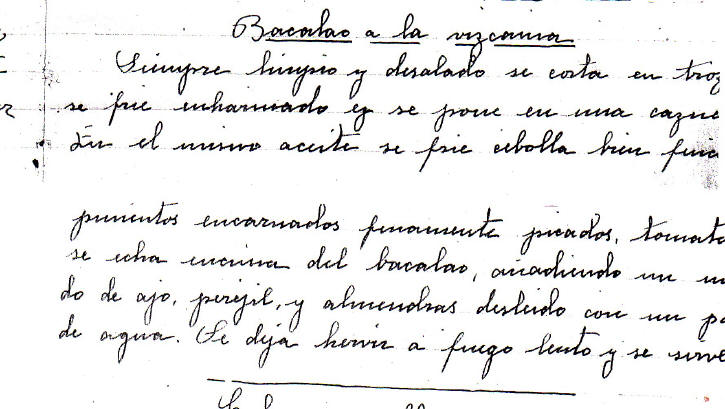 Bacalao a la vizcaina
Siempre limpio y desalado se corta en troz
se frie enharinado y se pone en una cazue
En el mismo aceite se frie cebolla bien fina
pimientos encarnados finamente picados, tomate
se echa encima del bacalao, añadiendo un m
do de ajo, perejil, y almendras desleido con un po
de agua. Se deja hervir a fuego lento y se sirve